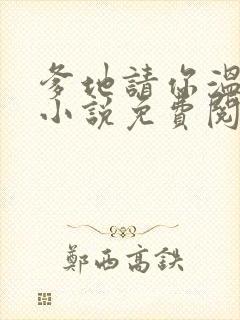 爹地請你溫
小說免費閱
鄭西高鉄